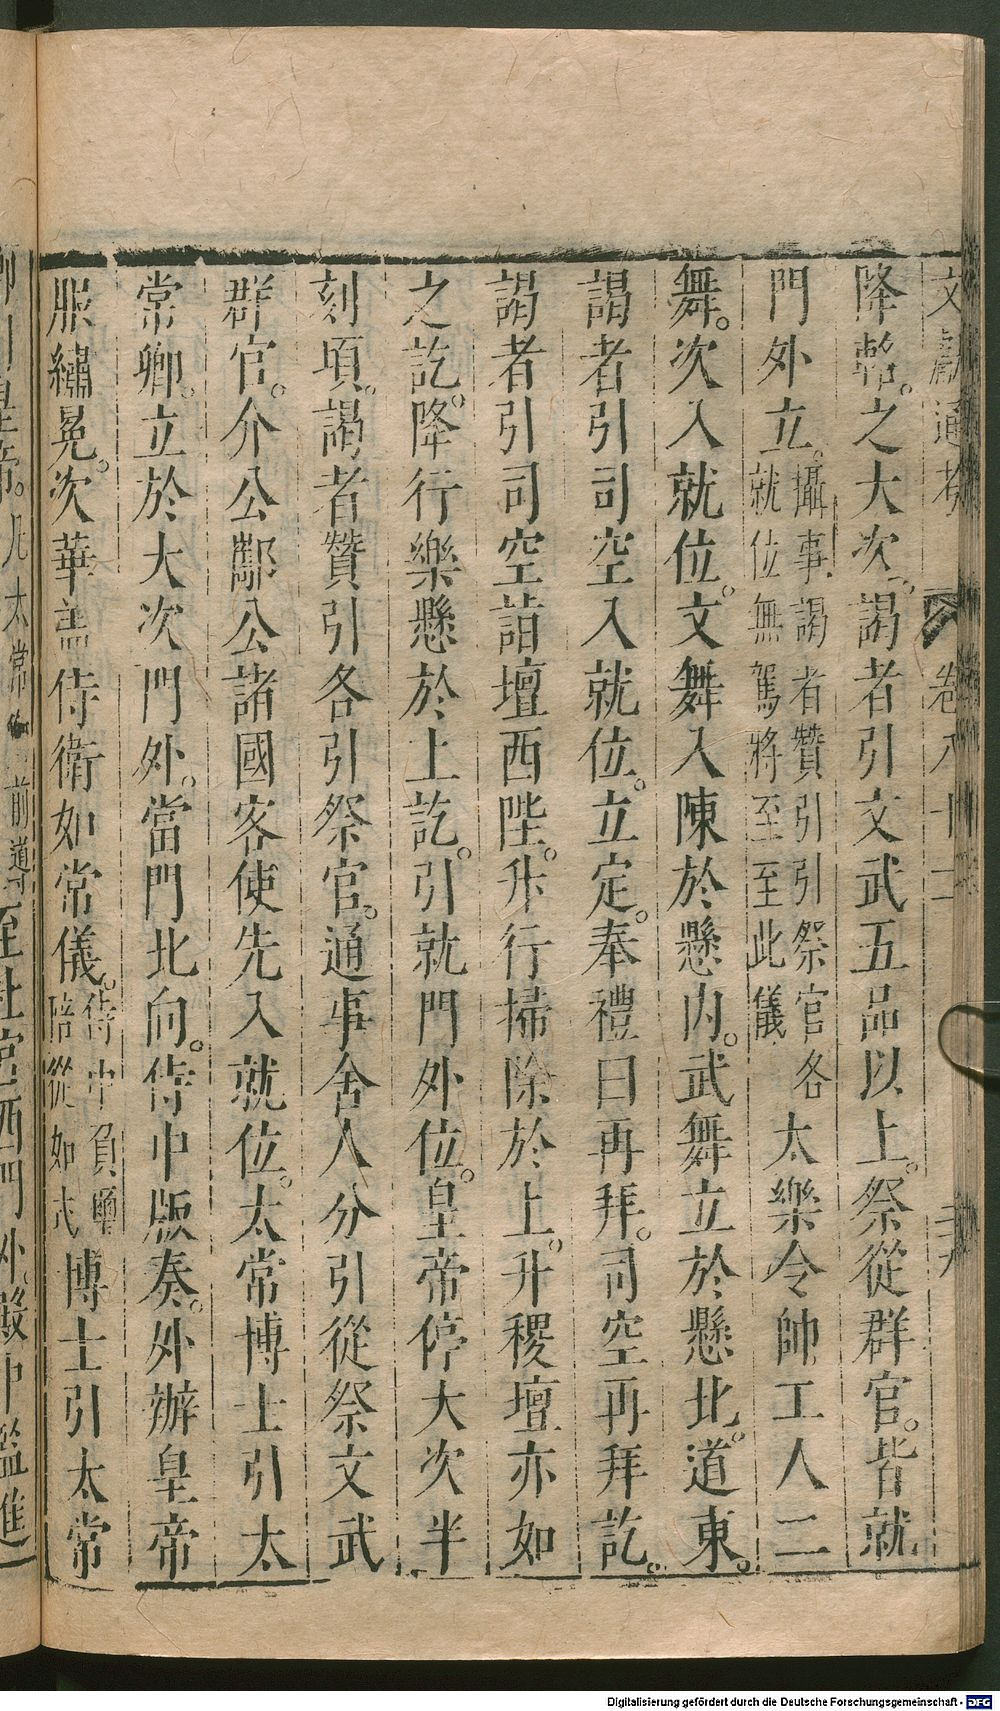 文獻通考 卷八十二
降輅。之大次。謁者引文武五品以上。祭從群官。皆就
門外立。攝事謁者贊引引祭官各就位無駕將至至此儀太樂令帥工人二
舞。次入就位。文舞入陳於懸內。武舞立於懸北。道東。
謁者引司空入就位。立定。奉禮曰再拜。司空再拜訖。
謁者引司空詣壇西陛。升行掃除於上。升稷壇亦如
之訖。降行樂懸於上訖。引就門外位。皇帝停大次半
刻頃。謁者贊引各引祭官。通事舍人分引從祭文武
群官。介公酅公諸國客使先入就位。太常博士引太
常卿。立於大次門外。當門北向。侍中版奏。外辦皇帝
服繡冕。次華蓋侍衛如常儀。侍中負璽陪從如式博士引太常
皇帝。凡太常 前導至社宮西門外。殿中監進
Digitalisierung gefördert durch die Deutsche Forschungsgemeinschaft - DFG